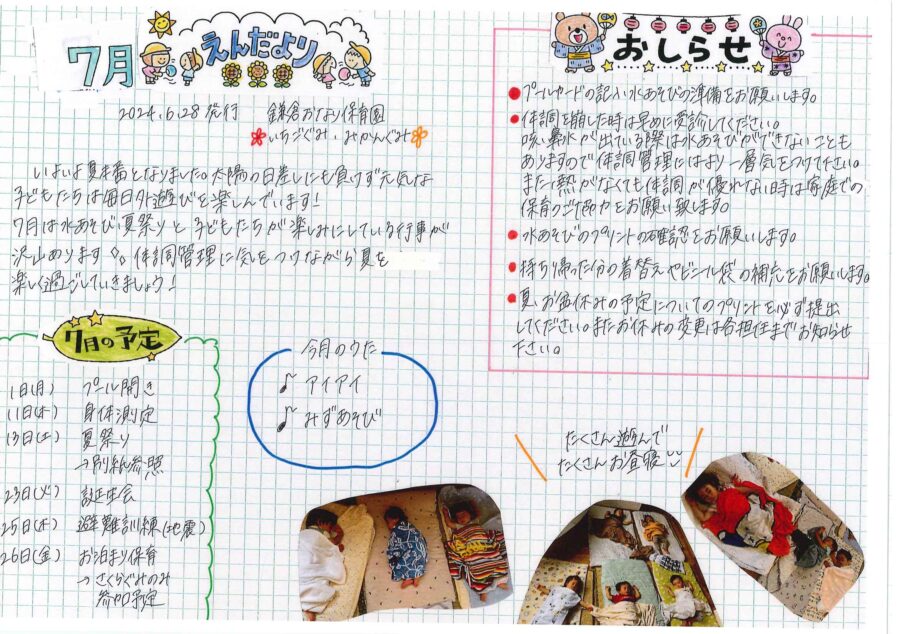 7月 えんだより
2024.6.28発行 鎌倉おなり保育園
いちごぐみ・みかんぐみ
いよいよ夏本番となりました。太陽の日差しにも負けず元気な
子どもたちは毎日外遊びを楽しんでいます！
7月は水あそび、夏祭りと子どもたちが楽しみにしている行事が
沢山あります。体調管理に気をつけながら夏を
楽しく過ごしていきましょう！
おしらせ
プールカードの記入、水あそびの準備をお願いします。
体調を崩した時は早めに受診してください。
咳、鼻水が出ている際は水あそびができないことも
ありますので体調管理にはより一層気をつけて下さい。
また、熱がなくても体調が優れない時は家庭での
保育のご協力をお願い致します。
水あそびのプリントの確認をお願いします。
持ち帰った分の着替えやビニール袋の補充をお願いします。
夏、お盆休みの予定についてのプリントを必ず提出
してください。またお休みの変更は各担任までお知らせ
下さい。
7月の予定
1日(月) プール開き
11日(木) 身体測定
13日(土) 夏祭り
→別紙参照
23日(火) 誕生会
25日(木) 避難訓練(地震)
26日(金) お泊まり保育
→さくらぐみのみ
参加予定
今月のうた
アイアイ
みずあそび
たくさん遊んで
たくさんお昼寝